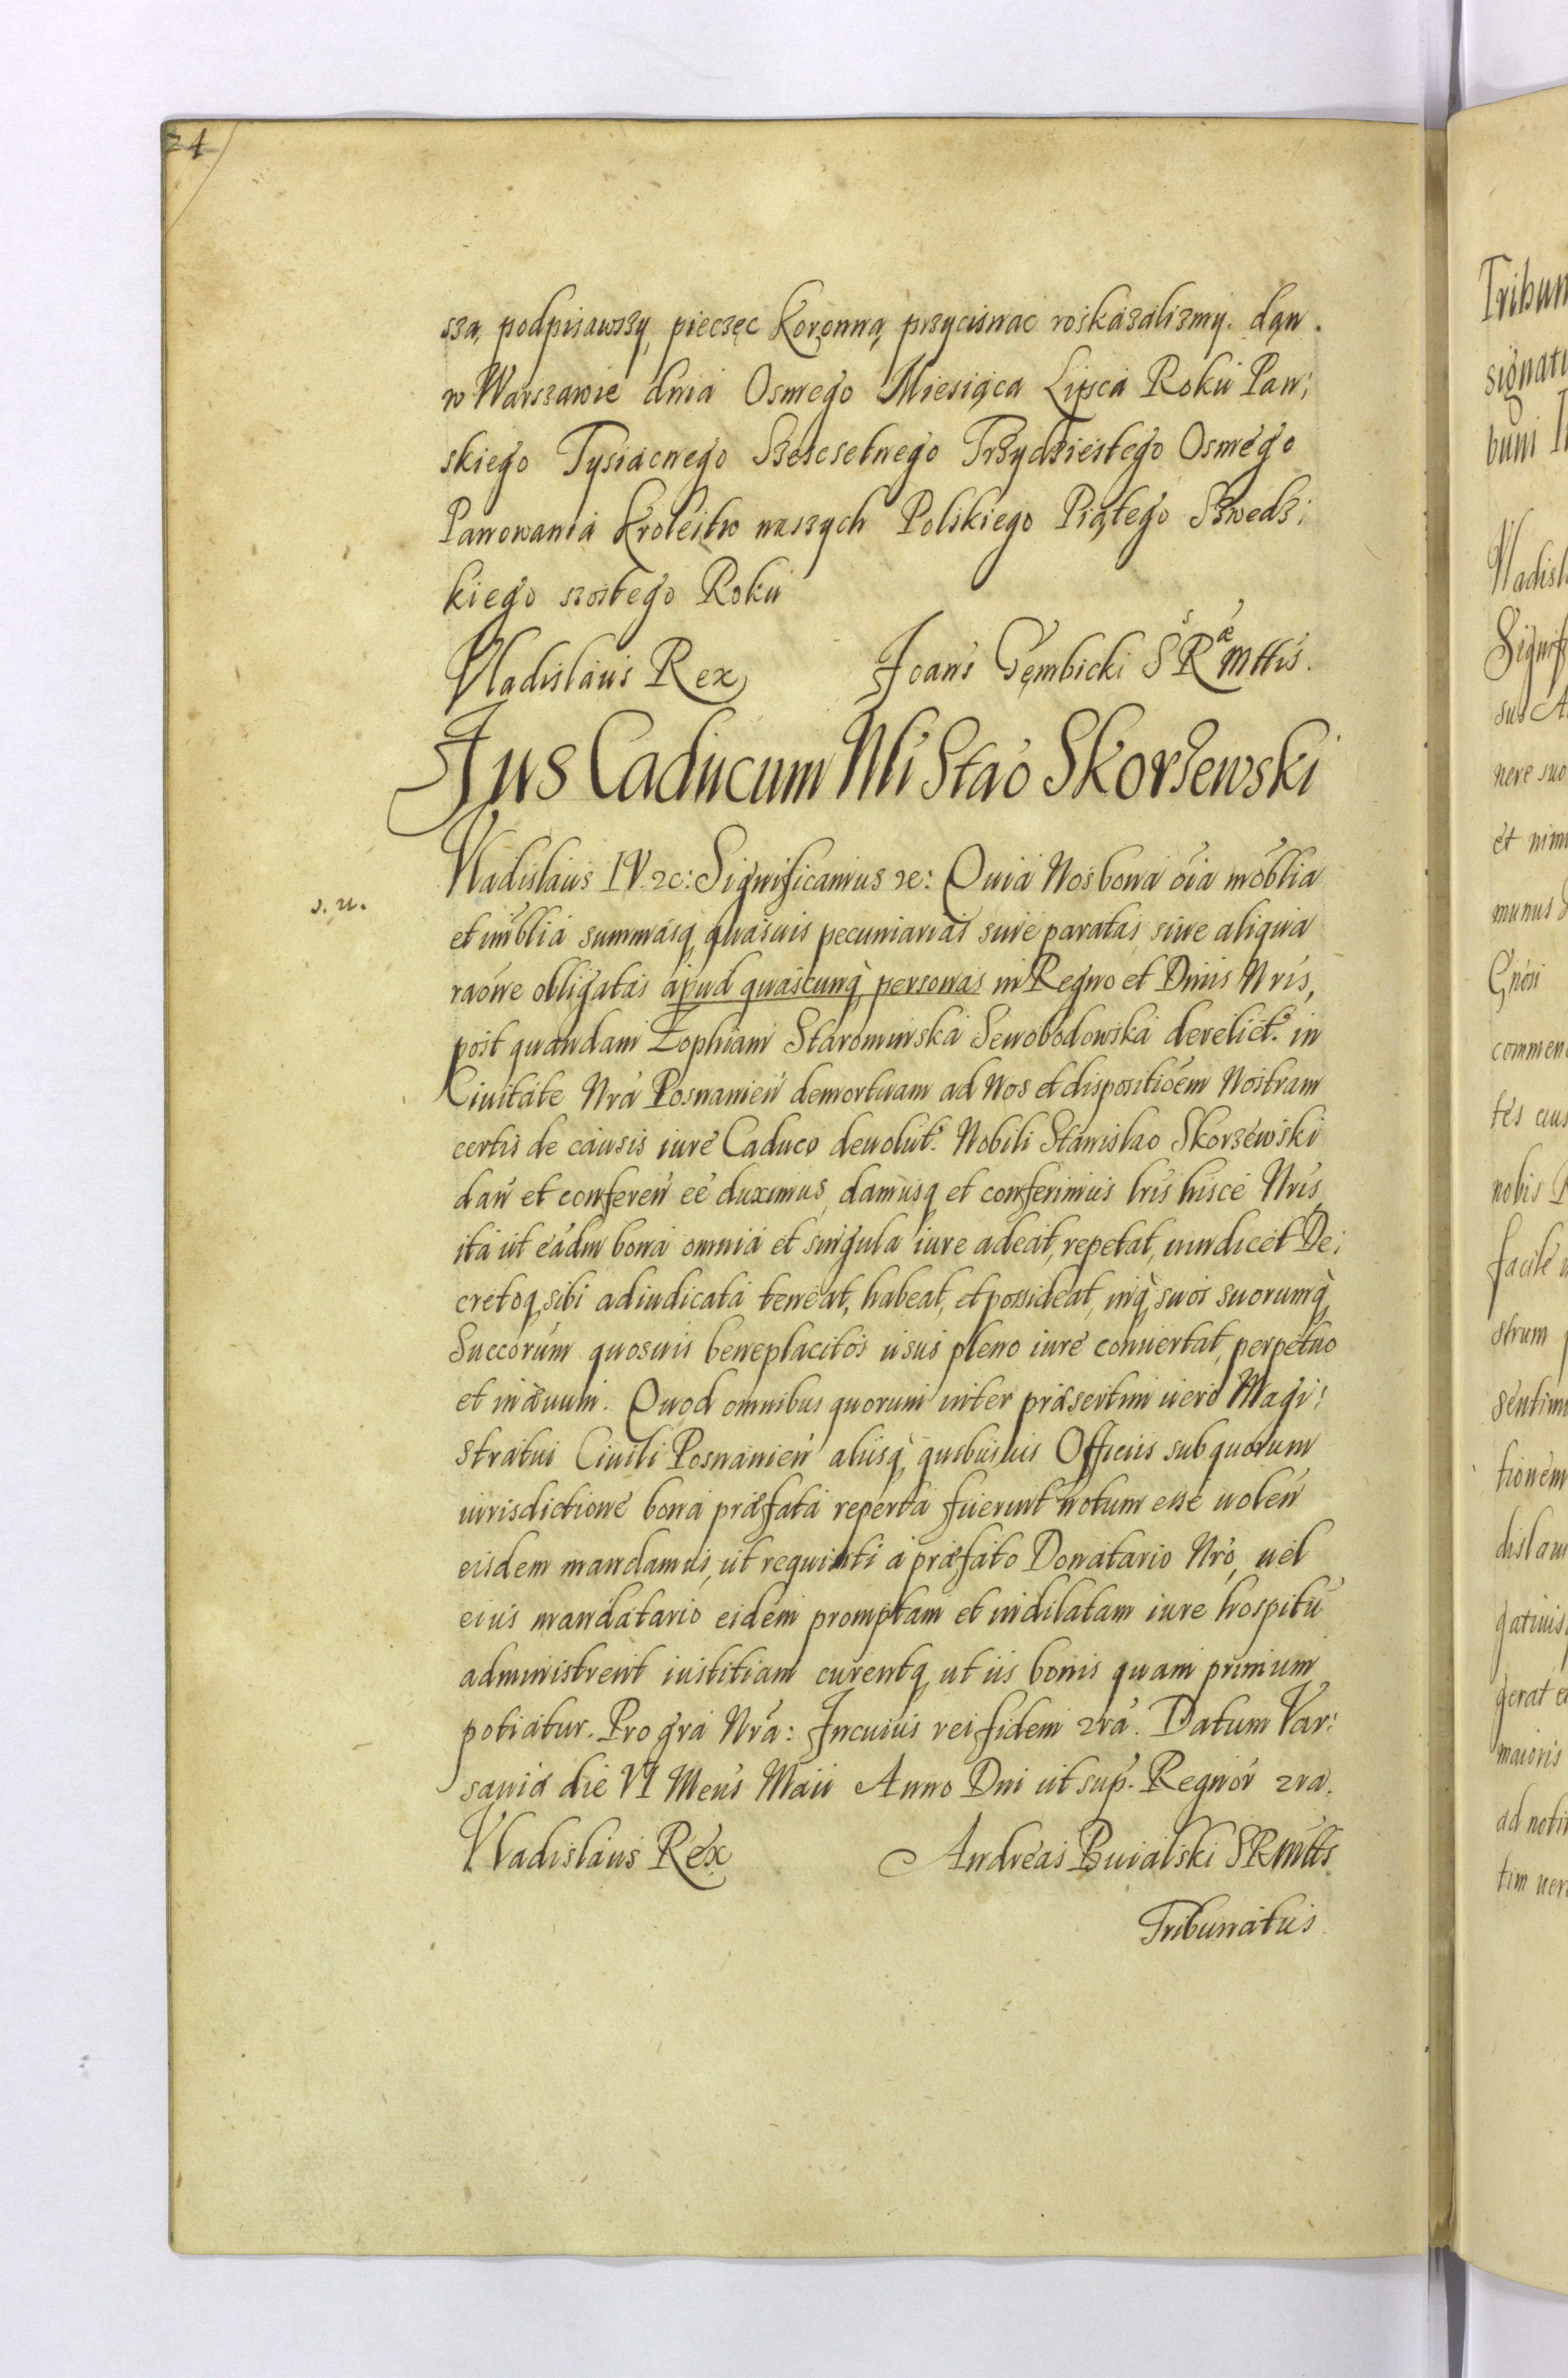 24
sza, podpisawszy, pieczęc Koronną przycisnac roskazalismy. dąn.
w Warszawie dnia Osmego Miesiąca Lipca Roku Pan;
skiego Tysiacnego Szescsetnego Trzydziestego Osmego
Panowania Krolestw naszych Polskiego Piątego Szwedz;
kiego szostego Roku
Vladislaus Rex Joan's Gęmbicki S R mttis.
Jus Caducum Nli Stao Skorzewski
Vladislaus IV. 2c: Significamus 2c: Quia Nos bona oia moblia
s. u.
et imblia summasq quasuis pecuniarias siue paratas siue aliqua
raone obligatas apud quascunq personas in Regno et Dniis Nris,
post quandam Zophiam Starominska Sewobodowska derelict. in
Ciuitate Nra Posnanien demortuam ad Nos et dispositioem Nostram
certis de causis iure Caduco deuolut. Nobili Stanislao Skorzewski
dan et conferen ee duximus, damusq et conferimus lris hisce Nris
ita ut eadm bona omnia et singula iure adeat, repetat, uindicet De;
cretoq sibi adiudicata teneat, habeat, et possideat, inq suos suorumq
Succorum quosuis beneplacitos usus pleno iure conuertat, perpetuo
et in æuum. Quod omnibus quorum inter præsertim uero Magi;
stratui Ciuili Posnanien aliisq quibusuis Officiis sub quorum
iurisdictione bona præfata reperta fuerint notum esse uolen
eisdem mandamus, ut requisiti a præfato Donatario Nro, uel
eius mandatario eidem promptam et indilatam iure hospitu
administrent iustitiam curentq ut iis bonis quam primum
potiatur. Pro gra Nra: In cuius rei fidem 2ra. Datum Var;
sauiæ die VI Mens Maii Anno Dni ut sup. Regnor 2ra.
Vladislaus Rex Andreas Buialski SRmtts
Tribunatus